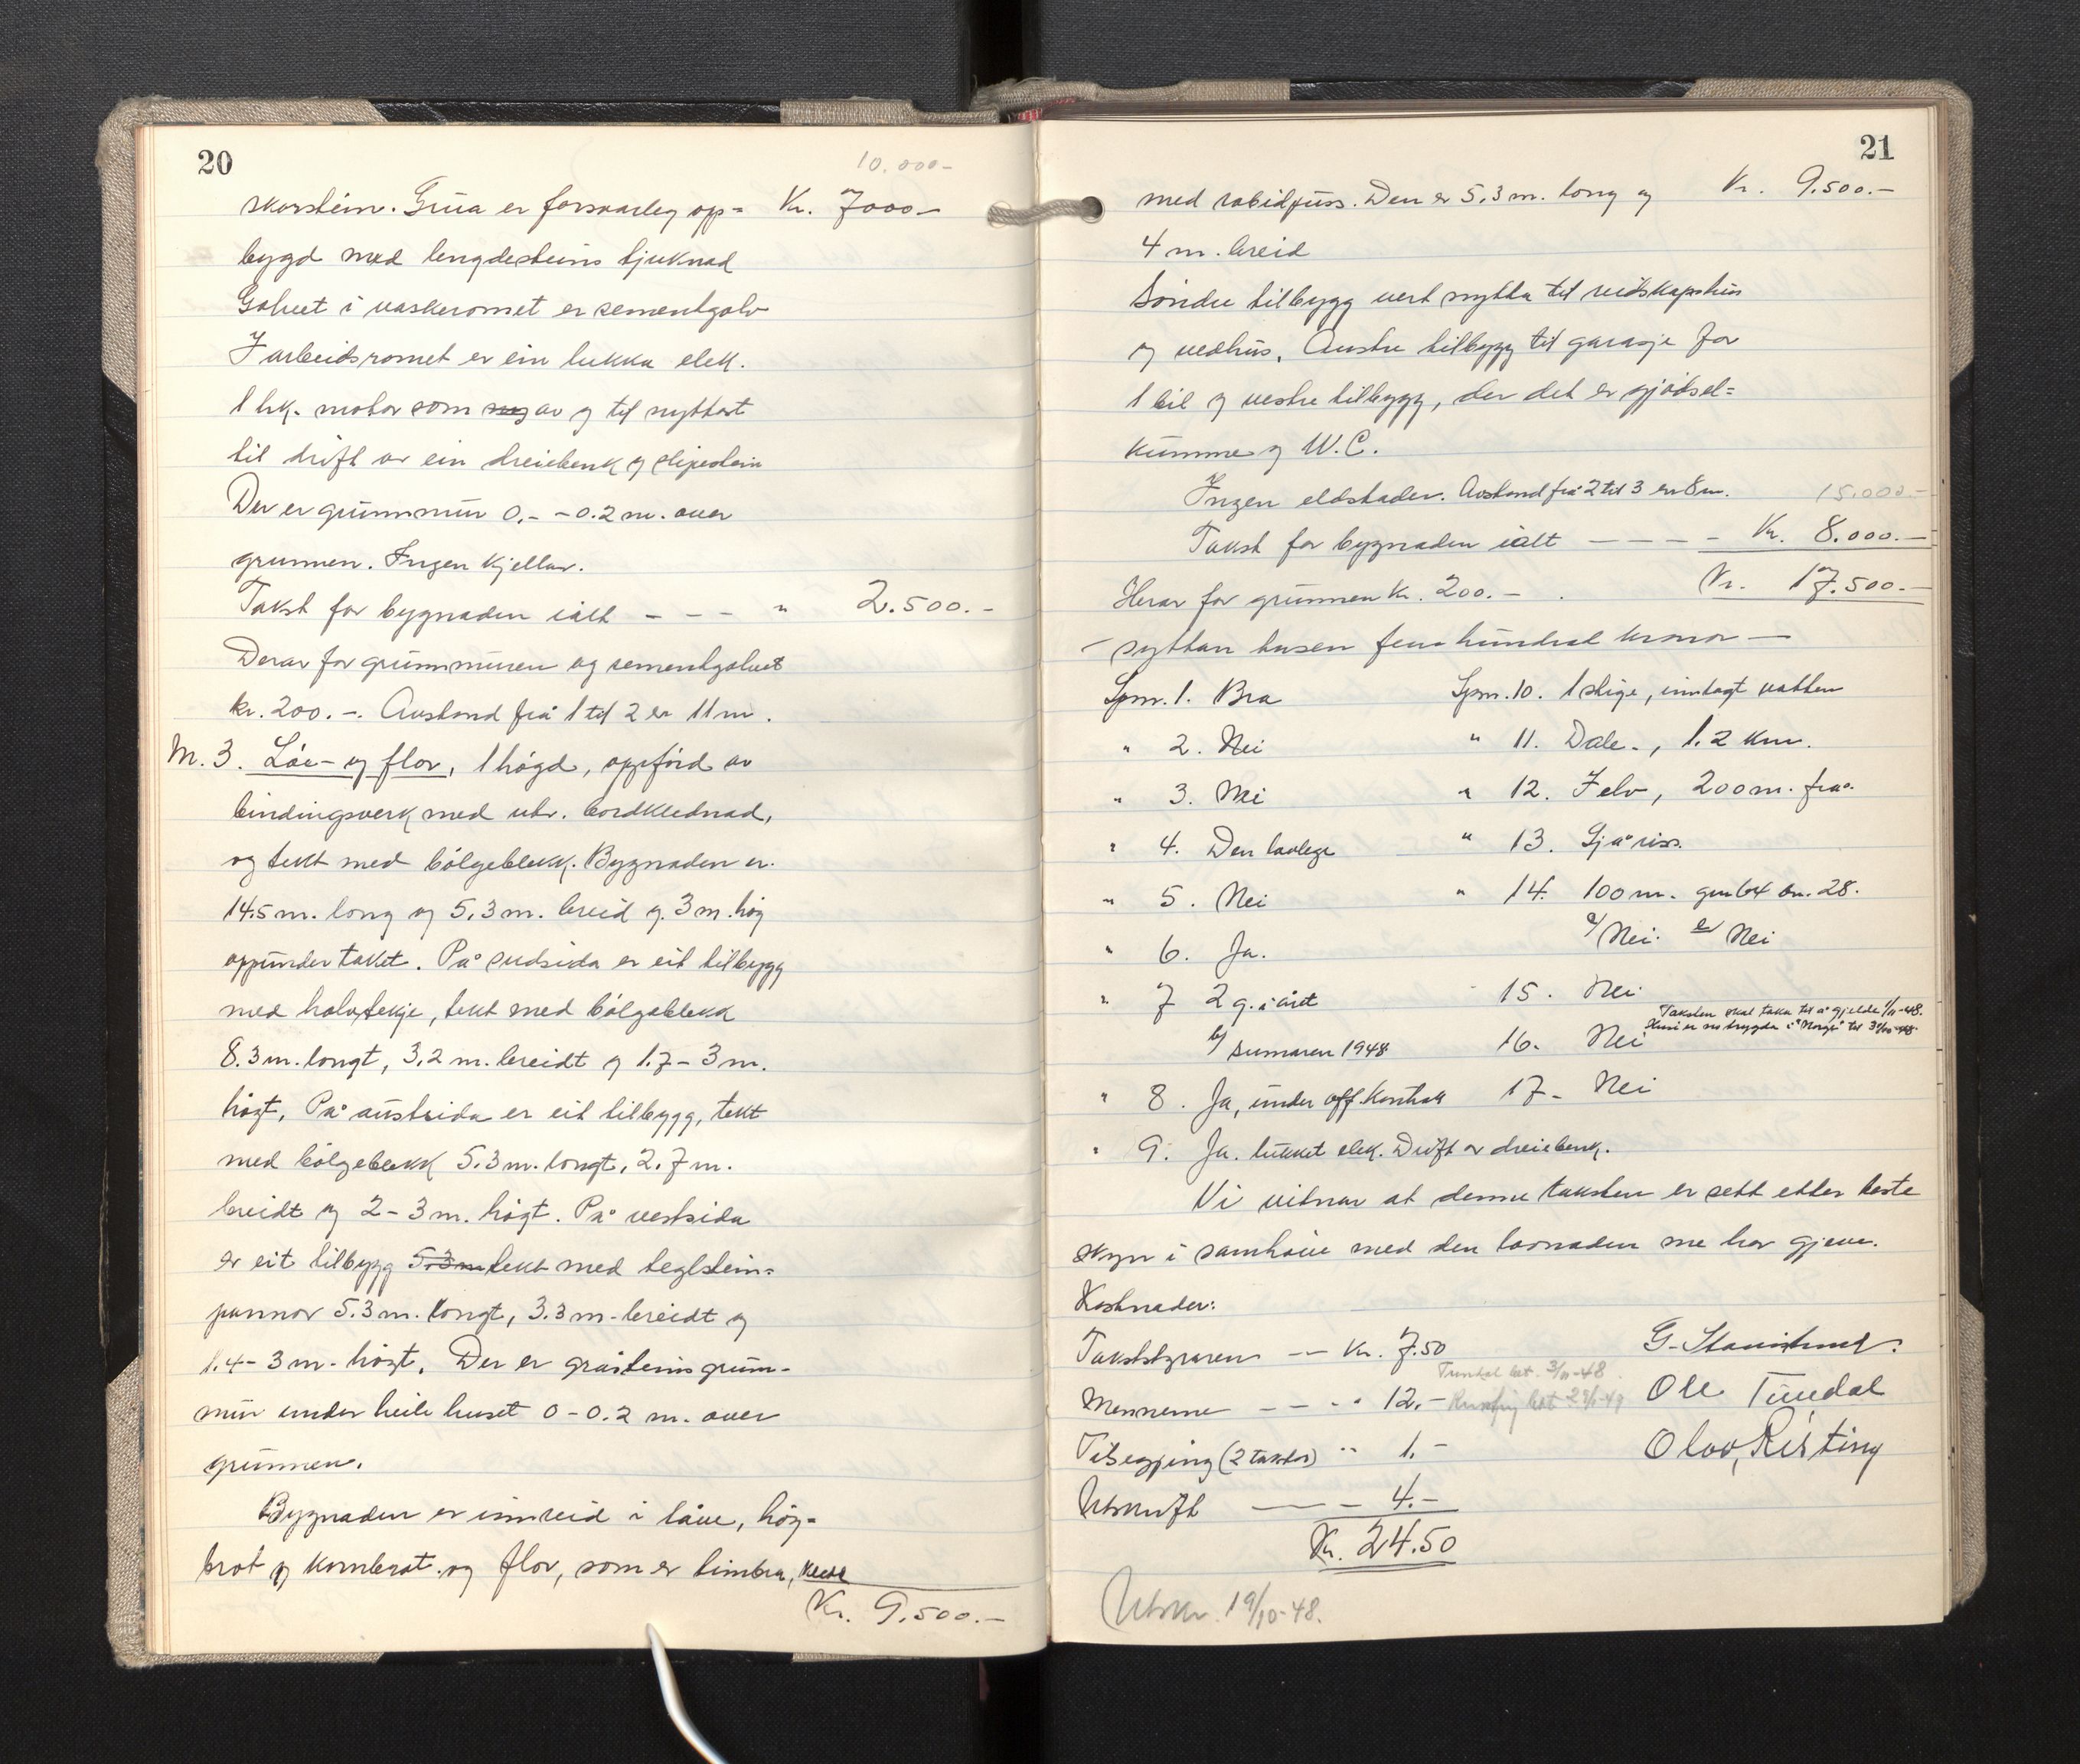 20
10.000-
skorstein. Grua er forsvarleg opp= Kr. 7000-
bygd med lengdesteins tjuknad
Golvet i vaskeromet er sementgolv
I arbeidsromet er ein lukka elek.
1 hk. motor som av og til nyttast
til drift av ein dreiebenk og slipestein
Der er grunnmur 0,- -0.2 m. over
grunnen. Ingen kjellar.
Takst for bygnaden ialt - - - " 2.500.-
Derav for grunnmuren og sementgolvet
kr. 200.-. Avstand frå 1 til 2 er 11 m.
M. 3. Löe- og flor, 1 högd, oppförd av
bindingsverk med utv. bordklednad,
og tekt med bölgeblekk. Bygnaden er
14.5 m. long og 5.3 m. breid og 3 m. høg
oppunder taket. På sudsida er eit tilbygg
med halvtekje, tekt med bölgeblekk
8.3 m. longt, 3.2 m. breidt og 1.7 - 3 m.
högt. På austsida er eit tilbygg, tekt
med bölgeblekk 5.3 m. longt, 2.7 m.
breidt og 2 - 3 m. högt. På vestsida
er eit tilbygg 5.3 m tekt med teglstein=
pannor 5.3 m. longt, 3.3 m. breidt og
1.4 - 3 m. högt. Der er gråsteins grunn-
mur under heile huset 0 - 0.2 m. over
grunnen.
Bygnaden er innreid i låve, höy-
brot og kornbrot og flor, som er timbra, kledd
Kr. 9.500.-
21
med rabidpuss. Den er 5.3 m. long og Kr. 9.500.-
4 m. breid
Söndre tilbygg vert nytta til reidskapshus
og vedhus. Austre tilbygg til garasje for
1 bil og vestre tilbygg, der det er gjödsel=
kumme og W.C.
Ingen eldstader. Avstand frå 2 til 3 er 8 m. 15.000.-
Takst for bygnaden ialt - - - - Kr. 8.000.-
Herav for grunnen kr. 200.- . Kr. 17.500.-
- syttan tusen fem hundrad kronor -
Spm. 1. Bra Spm. 10. 1 stige, inntagt vatten
" 2. Nei " 11. Dale., 1.2 km.
" 3. Nei " 12. Felv, 200 m. frå.
" 4. Den lovlege " 13. Sjå riss.
" 5. Nei " 14. 100 m. gnr 64 bn. 28.
" 6. Ja. a/ Nei. b/ Nei
" 7 2 g. i året 15. Nei
Taksten skal taka til å gjelde 1/11-48.
Huni er no trygda i "Norge" til 30/10-48.
b/ Sumaren 1948 16. Nei
" 8. Ja, under off. kontroll 17- Nei
" 9. Ja. lukket elek. Drift av dreiebenk.
Vi vitnar at denne taksten er sett etter beste
skyn i samhöve med den lovnaden me har gjeve.
Kostnader:
Takststyraren -- Kr. 7.50
Tundal bet. 3/11-48
Mennene - - - " 12.-
Ole Tundal
Tilsegjing (2 takster) " 1.-
Olav Risting
Utskrift - - - 4.-
Kr. 24.50
Utskr. 19/10-48.